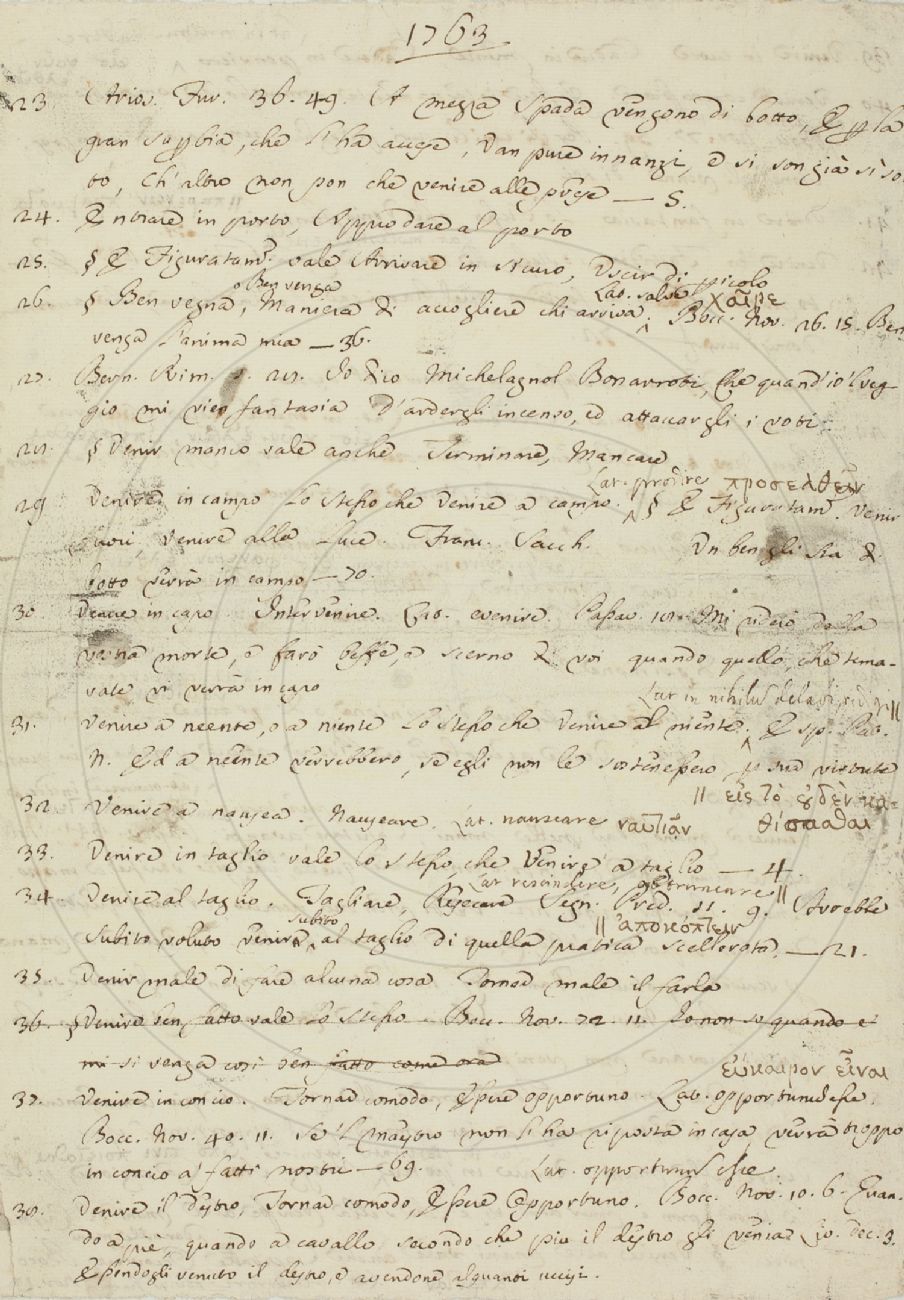 1763
23. Arios. Fur. 36. 49. A mezza spada vengono di botto, E per la
gran superbia, che li ha accese, Van pure innanzi, e si son già sì so-
to, Ch' altro non pon che venire alle prese — S.
24. Entrare in porto, Approdare al porto
25. § E Figuratam. vale Arrivare in sicuro, Uscir di pericolo
o Ben venga Lat. salve χαῖρε
26. § Ben vegna, Maniera di accogliere chi arriva. Bocc. Nov. 26. 15. Ben
venga l'anima mia — 36.
27. Bern. Rim. Io dico Michelagnol Bonarroti, Che quand'io 'l veg-
gio mi vien fantasia D'ardergli incenso, ed attaccargli i voti
28. § Venir manco vale anche Terminare, Mancare
Lat. prodire προσελθεῖν
29. Venire in campo Lo stesso che Venire a campo. § E Figuratam. Venir
fuori, Venire alla luce. Franc. Sacch. Un ben gli sta di
botto verrà in campo — 70.
30. Venire in capo. Intervenire. Lat. evenire. Passav. Mi riderò della
vostra morte, e farò beffe, e scerno di voi quando quello, che tema-
vate vi verrà in capo
Lat in nihilum delabi, redigi ||
31. Venire a neente, o a niente Lo stesso che Venire al niente. E
N. Ed a neente verrebbero, se egli non le sostenessero per sua virtute
|| εἰς τὸ οὐδὲν κα-
32. Venire a nausea. Nauseare. Lat. nauseare ναυτιᾶν θίστασθαι
33. Venire in taglio vale lo stesso, che Venire a taglio — 4.
Lat rescindere, obtruncare ||
34. Venire al taglio. Tagliare, Resecare Segn. Pred. 11. 9. Avrebbe
subito || ἀποκόπτειν
subito voluto venire al taglio di quella pratica scellerata. — 21.
35. Venir male di fare alcuna cosa Tornar male il farla
36. § Venire ben fatto vale Lo stesso. Bocc. Nov. 72. 11. Io non so quando e'
mi si venga così ben fatto come ora
εὔκαιρον εἶναι
37. Venire in concio. Tornar comodo, Essere opportuno. Lat. opportunum esse.
Bocc. Nov. 40. 11. Se 'l maestro non l'ha riposta in casa, verrà troppo
in concio a' fatti nostri — 69. Lat. opportunum esse
38. Venire il destro, Tornar comodo, Essere opportuno. Bocc. Nov. 10. 6. Quan-
do a piè, quando a cavallo secondo che più il destro gli venia Liv. Dec. 3.
Essendogli venuto il destro, e avendone alquanti uccisi.